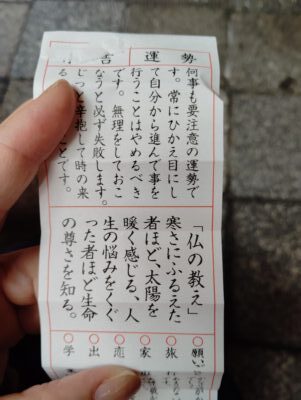 吉 運勢
何事も要注意の運勢で
す。常にひかえ目にし
て自分から進んで事を
行うことはやめるべき
です。無理をしておこ
なうと必ず失敗します。
じっと辛抱して時の来
る ことです。
「仏の教え」
寒さにふるえた
者ほど、太陽を
暖く感じる、人
生の悩みをくぐ
った者ほど生命
の尊さを知る。
○願い
○旅
○家
○恋
○出
○学